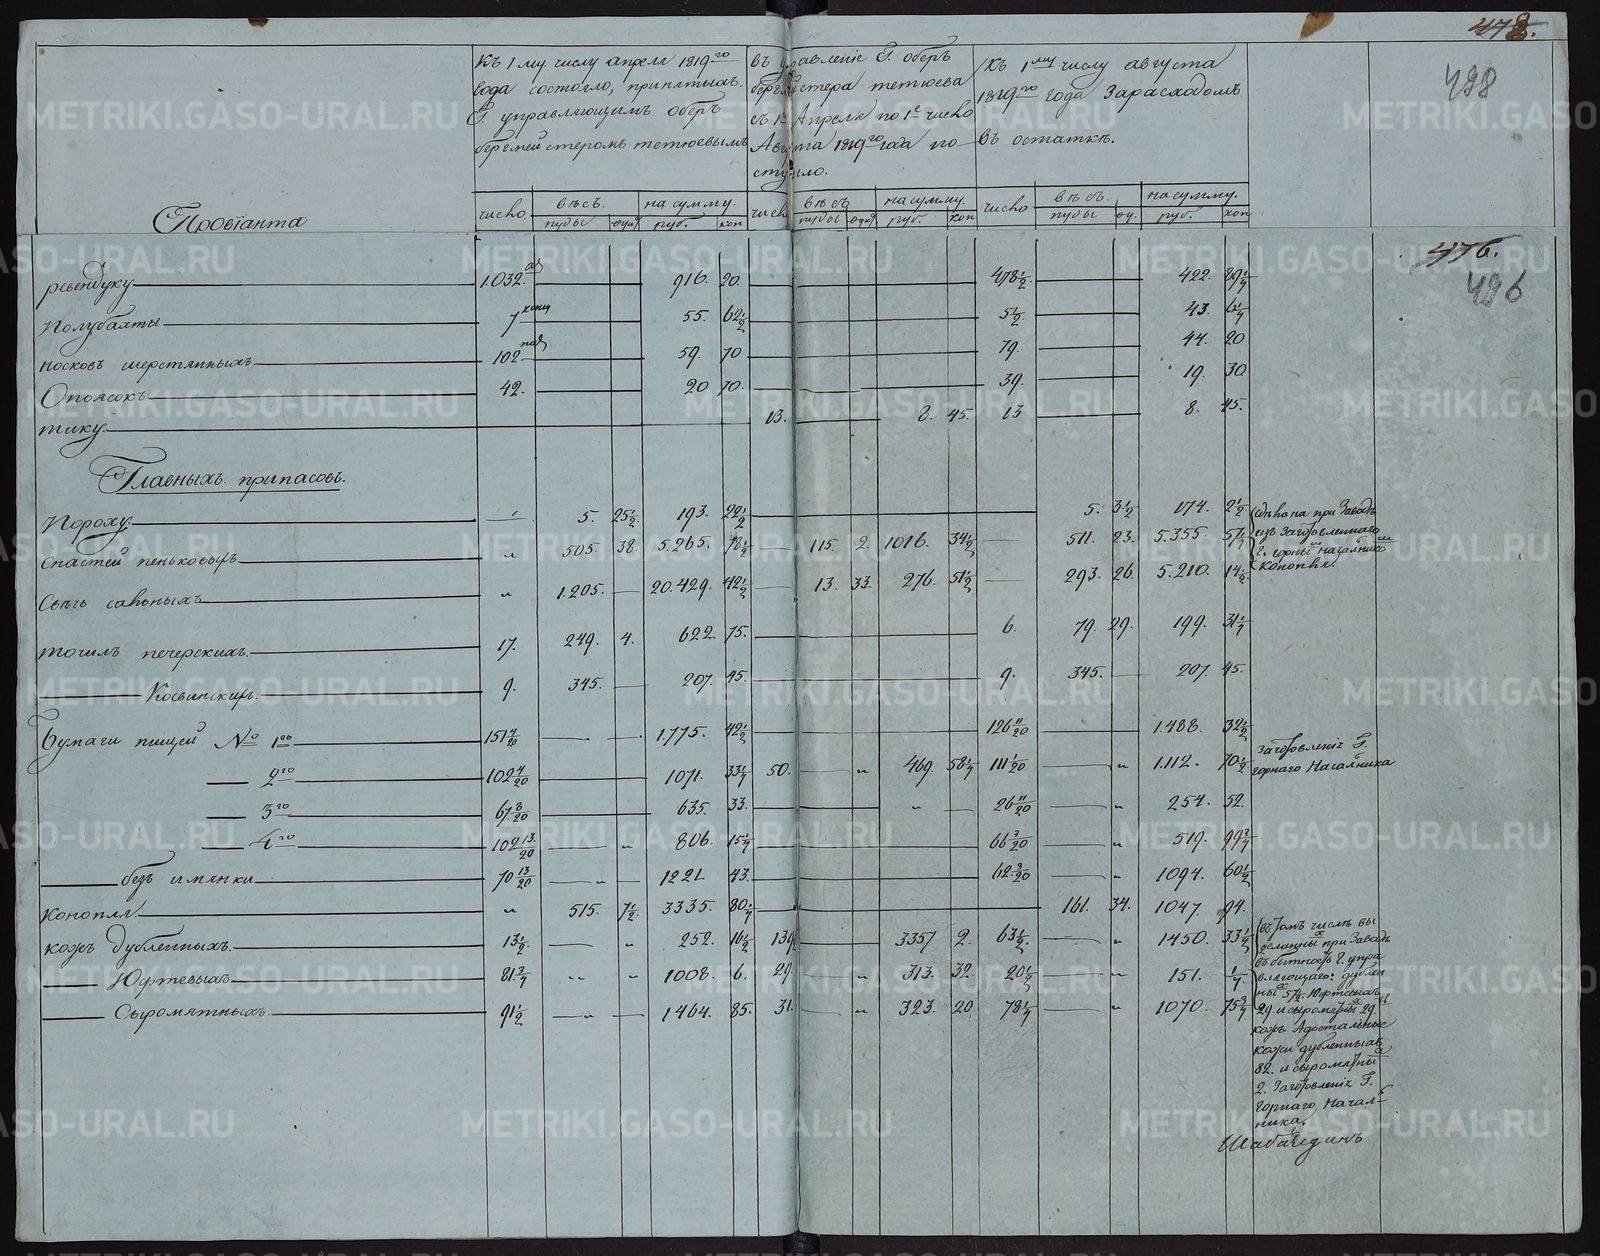 478.
498
Къ 1 му числу апреля 1819го
года состояло, принятыхъ
Г. управляющимъ оберъ
бергмейстеромъ тетюевымъ
въ управленіе Г. оберъ
бергмейстера тетюева
съ 1го Апреля по 1е число
Августа 1819го года по-
ступило.
Къ 1му числу августа
1819го года Зарасходомъ
Въ остаткѣ.
Провіанта
число вѣсъ. на сумму. пуды фун руб. коп
число вѣсъ на сумму. пуды фун руб. коп
число вѣсъ. на сумму. пуды фу. руб. коп
476.
496
рвендуку 1.032. 916. 20. 478½. 422. 29¼
Полубахты 7 конц 55. 62½ 5½. 43. 6¼
носковъ шерстянныхъ 102 пар 59. 70 79. 44. 20
Опоясокъ 42. 20 70. 39. 19. 30
тику 13. 8. 45. 13 8. 45.
Главныхъ припасовъ.
Пороху 5. 25½ 193. 22½ 5. 3½ 174. 2½
Снастей пеньковыхъ 505. 38. 5.265. 78½ 115. 2. 1016. 34½ 511. 23. 5.355. 57¼
Свѣчь сальныхъ 1.205. 20.429. 42½ 13. 33. 276. 51½ 293. 26. 5.210. 14½
точилъ печерскихъ 17. 249. 4. 622. 75. 6. 79. 29. 199. 31¼
Косвинскихъ. 9. 345. 207. 45. 9. 345. 207. 45.
Бумаги пищей № 1го 151 4/20 1.775. 42½ 126 11/20 1.488. 32½
2го 102 4/20 1071. 33¼ 50. 469. 58¼ 111 1/20 1.112. 70½
3го 67 8/20 635. 33. 26 11/20 254. 52.
4го 102 13/20 806. 15¼ 66 7/20 519. 99¾
безъ имянки 70 13/20 1221 43. 62 9/20 1094. 60½
Конопля 515. 7½ 3335. 80¼ 161. 34. 1047. 94.
кожъ дубленныхъ 13½. 252. 16½ 139 3357 2. 63½. 1450. 33½
Юфтевыхъ 81¾ 1008. 6. 29. 313. 32. 20½ 151. ¼
Сыромятныхъ. 91½ 1464. 85. 31. 323. 20 78¼ 1070. 75¾
сдѣвана при Заводѣ
изъ Заготовленнаго
г. горны начальнико
Конопли.
Заготовленіе Г.
горнаго Начальника
въ томъ числѣ вы
деланны при Заводѣ
въ бытность г. упра
вляющаго: дублен
ны 57½. Юфтевыхъ
29. и сыромятны 29.
кожъ Адостальные
кожи дубленныхъ
82. и сыромятны
2. Заготовленіе Г.
горнаго Началь-
ника.
Шабалдинъ
METRIKI.GASO-URAL.RU